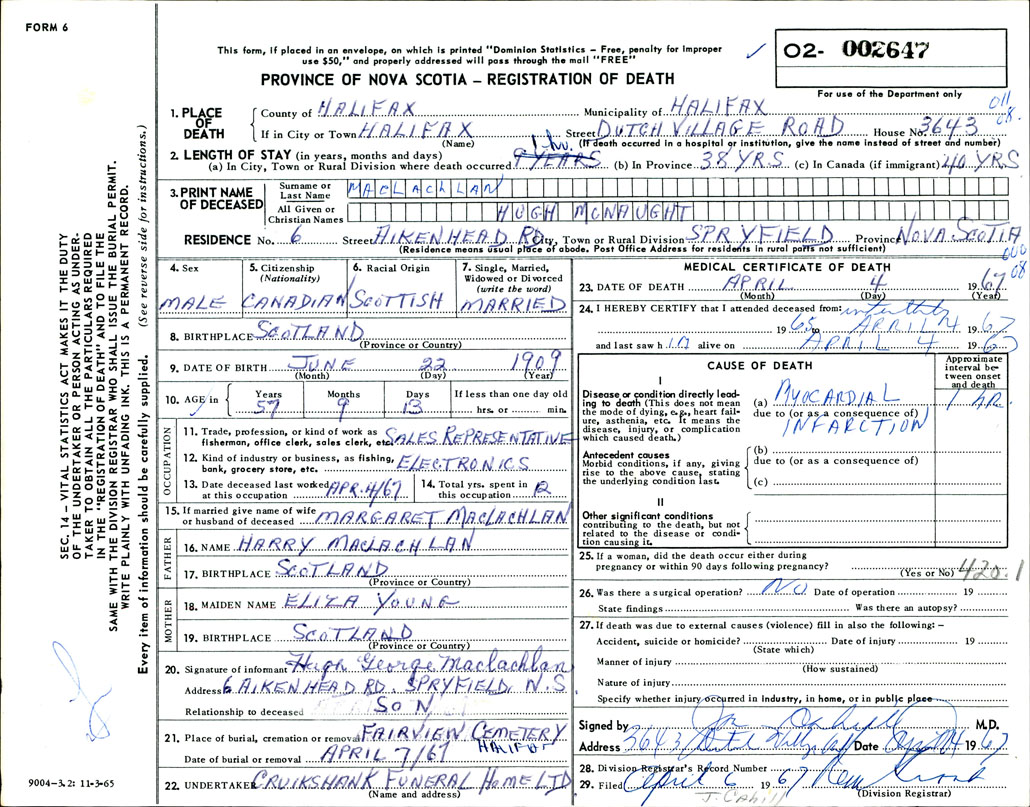 FORM 6
This form, if placed in an envelope, on which is printed "Dominion Statistics – Free, penalty for improper
use $50," and properly addressed will pass through the mail "FREE"
PROVINCE OF NOVA SCOTIA – REGISTRATION OF DEATH
✓ 02- 002647
For use of the Department only
011
08.
1. PLACE OF DEATH { County of HALIFAX Municipality of HALIFAX
If in City or Town HALIFAX Street DUTCH VILLAGE ROAD House No. 3643
(Name) 1 hr. (If death occurred in a hospital or institution, give the name instead of street and number)
2. LENGTH OF STAY (in years, months and days)
(a) In City, Town or Rural Division where death occurred 9 YEARS (b) In Province 38 YRS (c) In Canada (if immigrant) 40 YRS
3. PRINT NAME OF DECEASED { Surname or Last Name MACLACHLAN
All Given or Christian Names HUGH MCNAUGHT
RESIDENCE No. 6 Street AIKENHEAD RD. City, Town or Rural Division SPRYFIELD Province NOVA SCOTIA
(Residence means usual place of abode. Post Office Address for residents in rural parts not sufficient)
08
4. Sex MALE
5. Citizenship (Nationality) CANADIAN
6. Racial Origin SCOTTISH
7. Single, Married, Widowed or Divorced (write the word) MARRIED
8. BIRTHPLACE SCOTLAND
(Province or Country)
9. DATE OF BIRTH JUNE 22 1909
(Month) (Day) (Year)
10. AGE in { Years 57 Months 9 Days 13 If less than one day old hrs. or min.
OCCUPATION
11. Trade, profession, or kind of work as fisherman, office clerk, sales clerk, etc. SALES REPRESENTATIVE
12. Kind of industry or business, as fishing, bank, grocery store, etc. ELECTRONICS
13. Date deceased last worked at this occupation APR. 4/67 14. Total yrs. spent in this occupation 12
15. If married give name of wife or husband of deceased MARGARET MACLACHLAN
FATHER
16. NAME HARRY MACLACHLAN
17. BIRTHPLACE SCOTLAND
(Province or Country)
MOTHER
18. MAIDEN NAME ELIZA YOUNG
19. BIRTHPLACE SCOTLAND
(Province or Country)
20. Signature of informant Hugh George Maclachlan
Address 6 AIKENHEAD RD. SPRYFIELD, N.S
Relationship to deceased SON
21. Place of burial, cremation or removal FAIRVIEW CEMETERY
Date of burial or removal APRIL 7/67
22. UNDERTAKER CRUIKSHANK FUNERAL HOME LTD
(Name and address)
MEDICAL CERTIFICATE OF DEATH
23. DATE OF DEATH APRIL 4 1967
(Month) (Day) (Year)
24. I HEREBY CERTIFY that I attended deceased from:
1965 to APRIL 4 1967
and last saw him alive on APRIL 4 1967
CAUSE OF DEATH
Approximate interval between onset and death
I
Disease or condition directly leading to death (This does not mean the mode of dying, e.g., heart failure, asthenia, etc. It means the disease, injury, or complication which caused death.)
(a) MYOCARDIAL 1 HR.
due to (or as a consequence of)
INFARCTION
Antecedent causes
Morbid conditions, if any, giving rise to the above cause, stating the underlying condition last.
(b)
due to (or as a consequence of)
(c)
II
Other significant conditions
contributing to the death, but not related to the disease or condition causing it.
25. If a woman, did the death occur either during
pregnancy or within 90 days following pregnancy?
(Yes or No) 420.1
26. Was there a surgical operation? NO Date of operation 19
State findings Was there an autopsy?
27. If death was due to external causes (violence) fill in also the following: –
Accident, suicide or homicide? Date of injury 19
(State which)
Manner of injury
(How sustained)
Nature of injury
Specify whether injury occurred in industry, in home, or in public place
Signed by M.D.
Address 3643 Dutch Village Rd Date April 4 1967
28. Division Registrar's Record Number
29. Filed April 6 1967
(Division Registrar)
J. Cahill
SEC. 14 – VITAL STATISTICS ACT MAKES IT THE DUTY
OF THE UNDERTAKER OR PERSON ACTING AS UNDER-
TAKER TO OBTAIN ALL THE PARTICULARS REQUIRED
IN THE "REGISTRATION OF DEATH" AND TO FILE THE
SAME WITH THE DIVISION REGISTRAR WHO SHALL ISSUE THE BURIAL PERMIT.
WRITE PLAINLY WITH UNFADING INK. THIS IS A PERMANENT RECORD.
Every item of information should be carefully supplied. (See reverse side for instructions.)
9004-3.2: 11-3-65